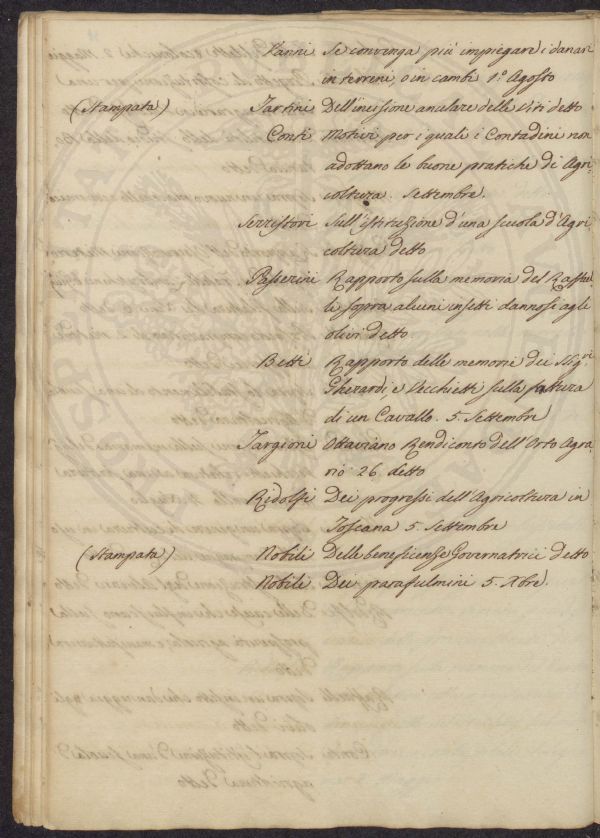 Vanni Se convenga più impiegare i danari
in terreni, o in cambi 1.º Agosto
(Stampata) Tartini Dell'incisione anulare delle Viti detto
Conti Motivi per i quali i Contadini non
adottano le buone pratiche di Agri:
coltura. Settembre.
Serristori Sull'istituzione d'una scuola d'Agri
coltura detto
Passerini Rapporto sulla memoria del Raffael
li sopra alcuni insetti dannosi agli
olivi detto
Betti Rapporto delle memorie dei Sigri
Gherardi, e Vecchietti sulla
di un Cavallo. 5. Settembre
Targioni Ottaviano Rendiconto dell'Orto Agra
rio 26. detto
Ridolfi Dei progressi dell'Agricoltura in
Toscana 5. Settembre
(Stampata) Nobili Delle Governatrici detto
Nobili Dei parafulmini 5. Xbre.